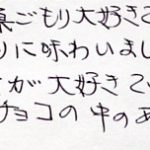 巣ごもり大好きで
りに味わいまし
が大好きでい
チョコの中のあ